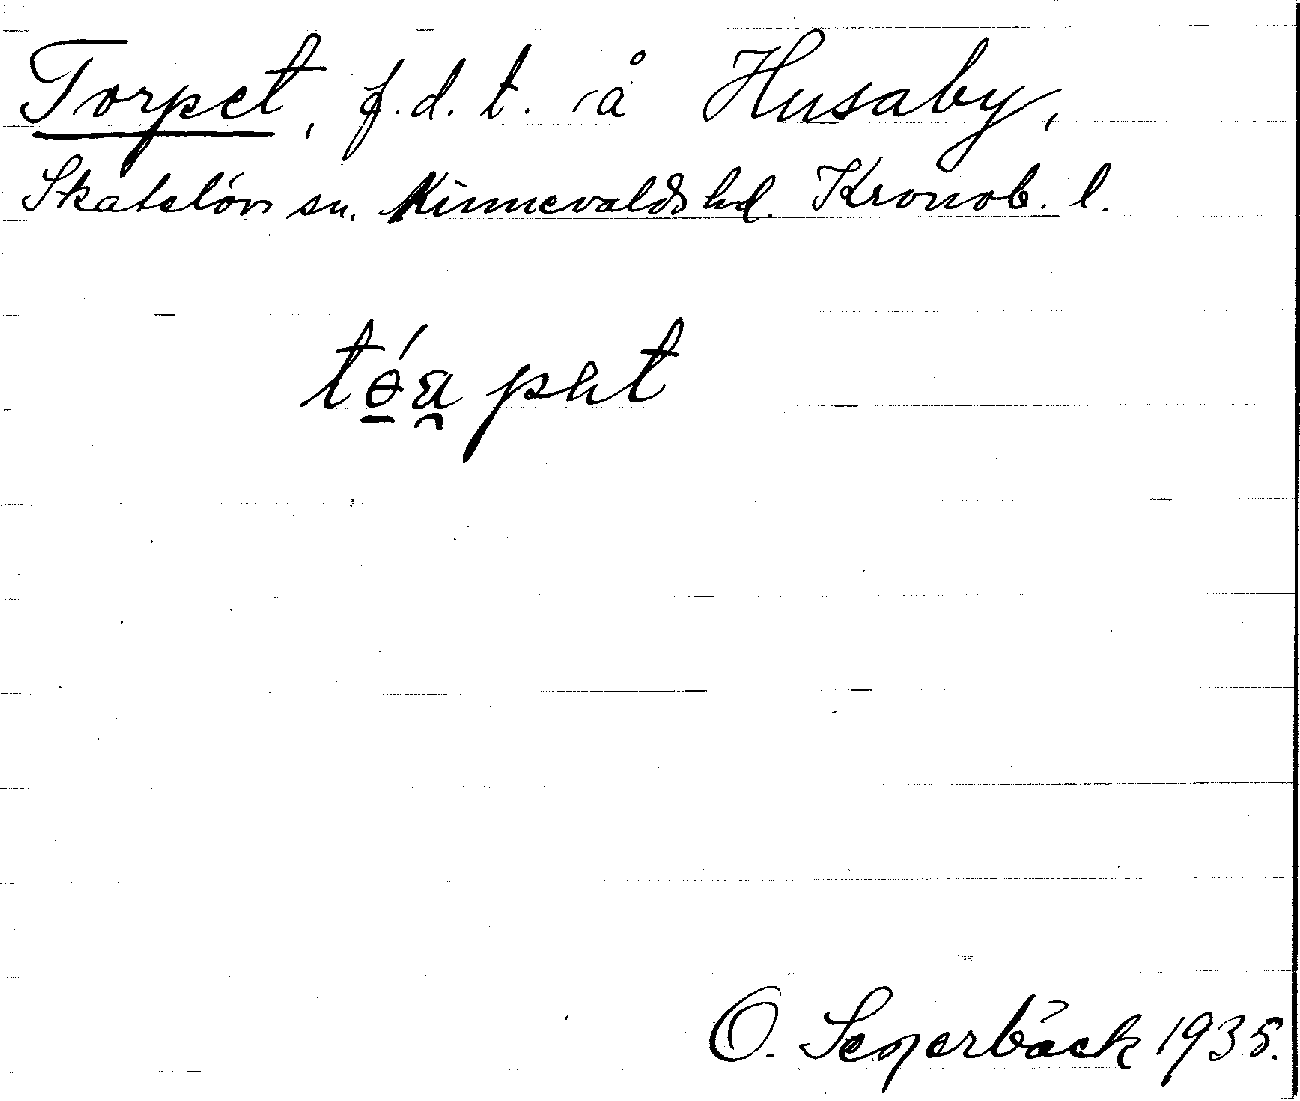 Torpet, f.d. t. å Husaby,
Skatelövs sn. Kinnevalds hd. Kronob. l.
tɵ́a̯pət
O. Segerbäck 1935.